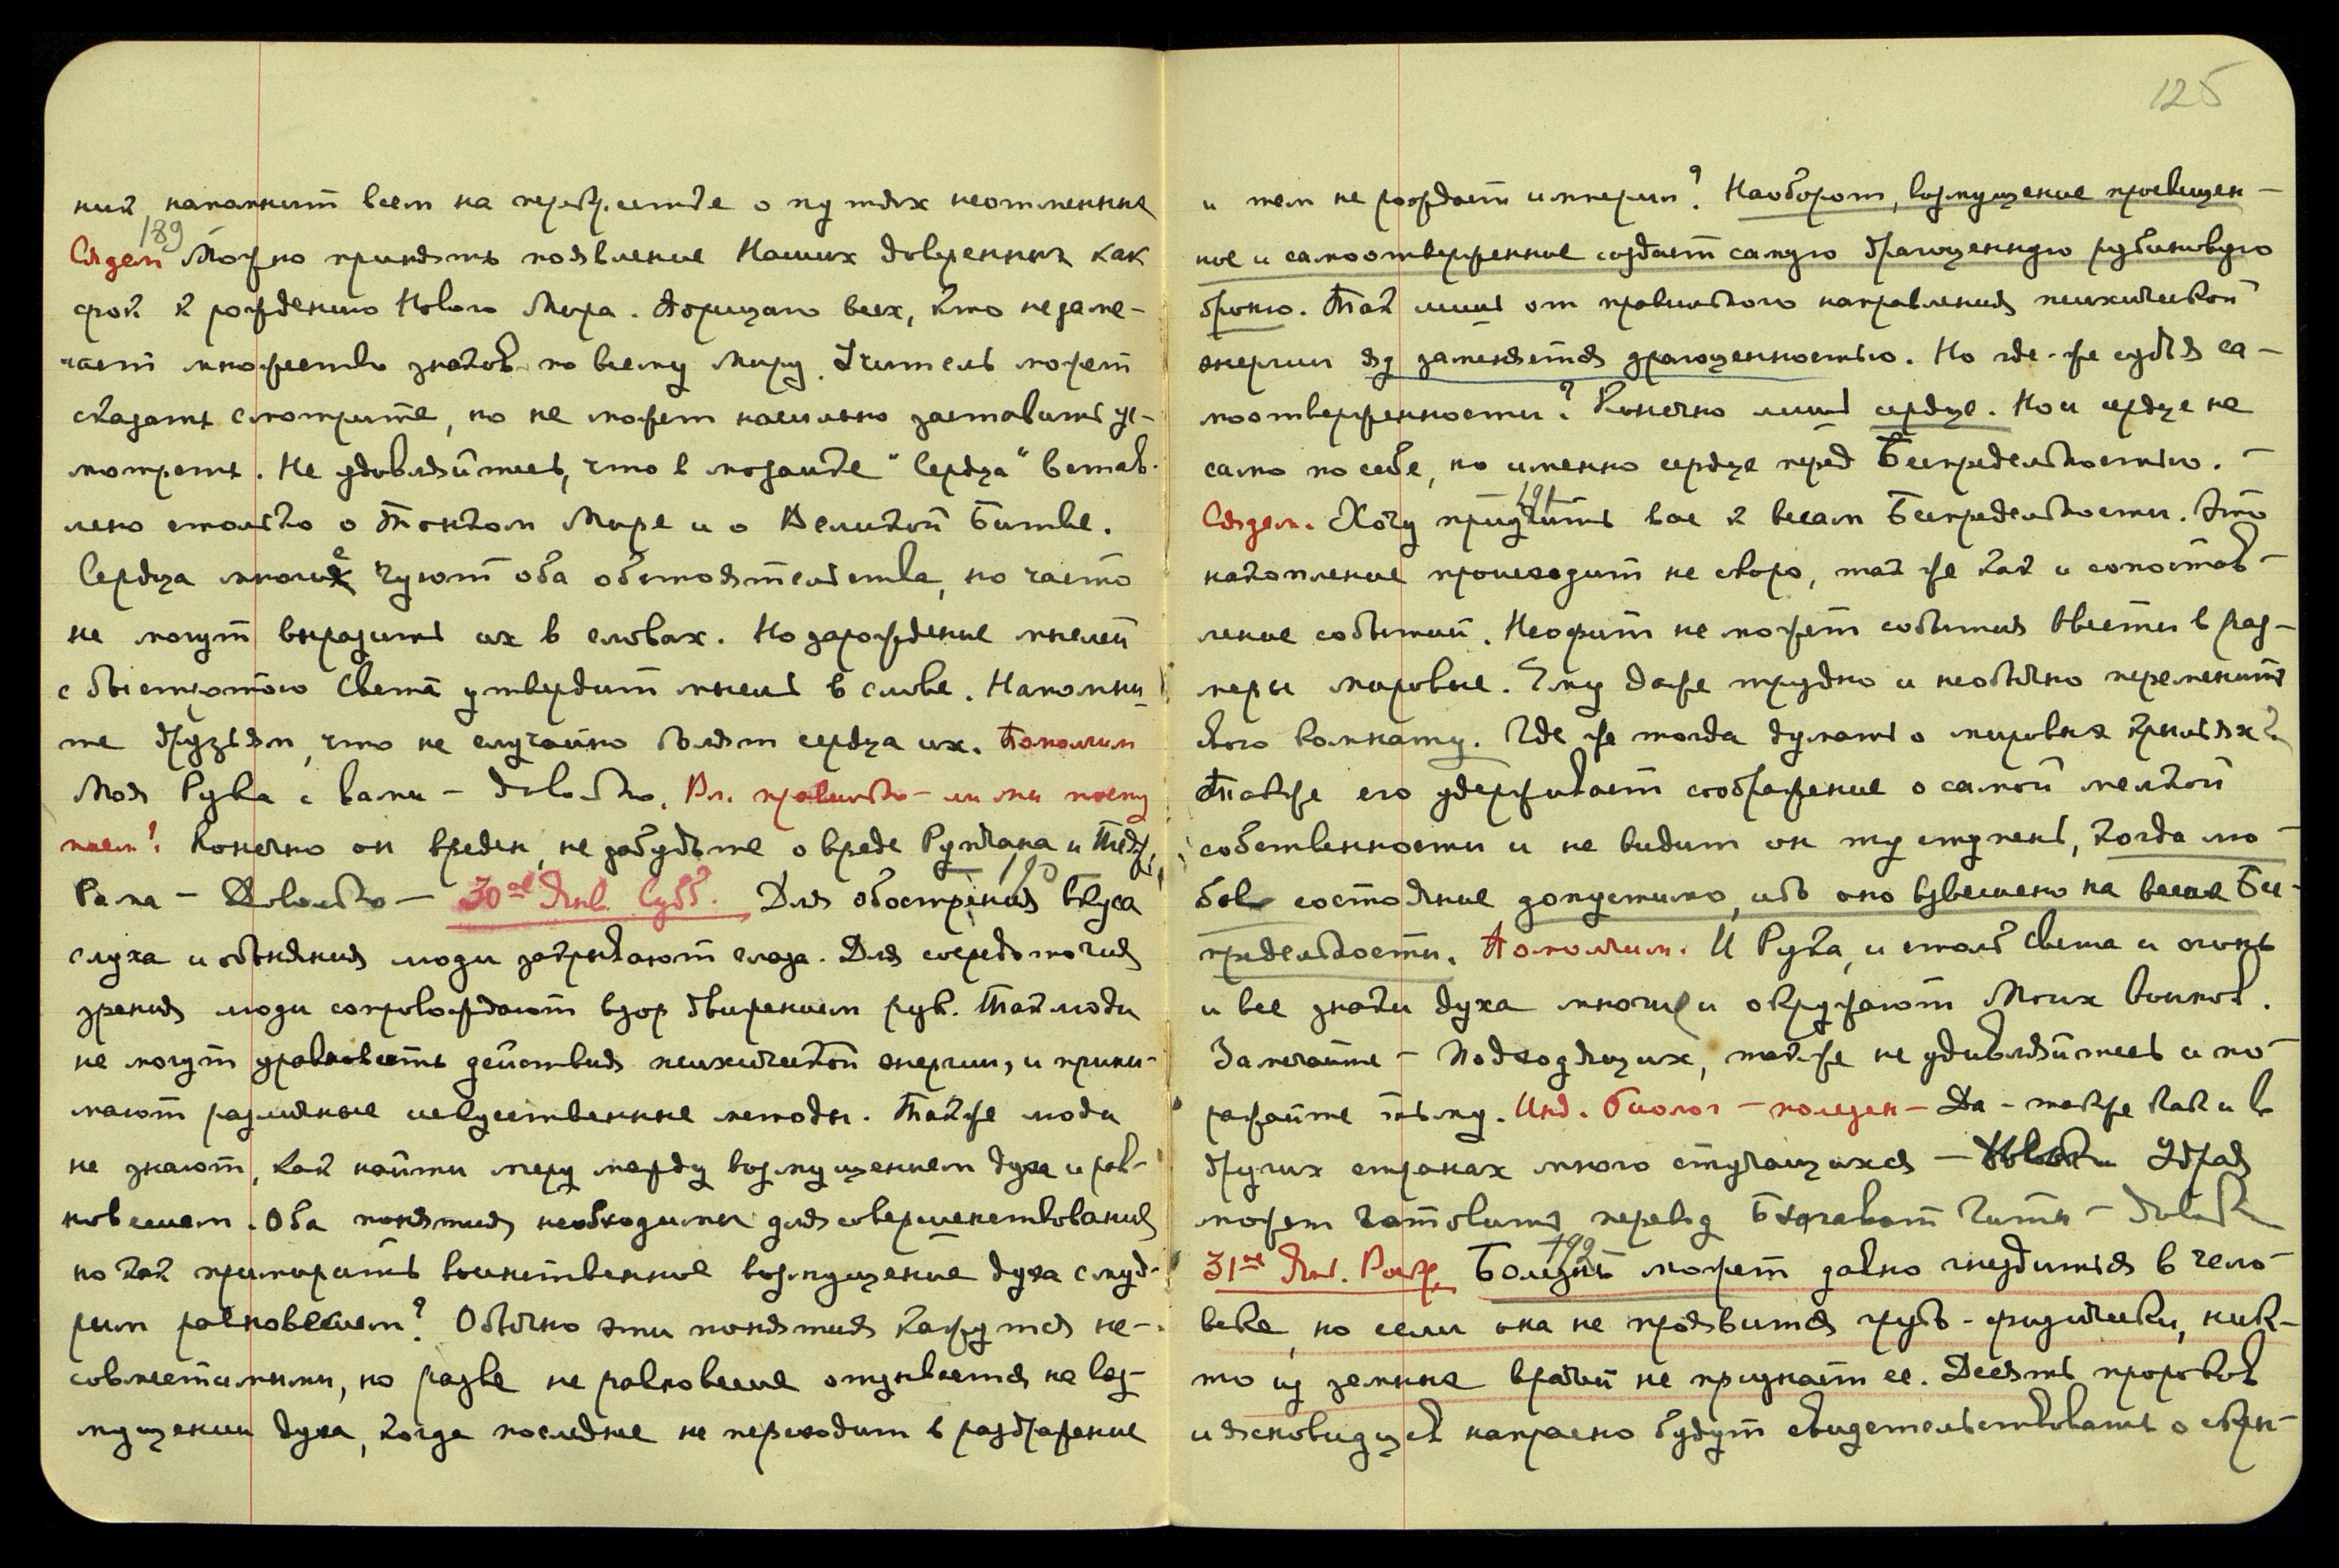 ник напомнит всем на перекрестке о путях неотменных
189
Сядем Можно принять появление Наших доверенных как
срок к рождению Нового Мира. Порицаю всех, кто не заме-
чает множество знаков по всему Миру. Учитель может
сказать смотрите, но не может насильно заставить ус-
мотреть. Не удивляйтесь, что в мозаике "Сердца" встав-
лено столько о Тонком Мире и о Великой Битве.
Сердца многие чуют оба обстоятельства, но часто
не могут выразить их в словах. Но зарождение мыслей
с быстротою Света утвердит мысль в слове. Напомни-
те друзьям, что не случайно болят сердца их. Помолчим
Моя Рука с вами – довольно. Вл. правильно – ли мы посту
паем? Конечно он вреден, не забудьте о вреде и
Рама – Довольно –
190
30ое Янв. Субб. Для обострения вкуса
слуха и обоняния люди закрывают глаза. Для сосредоточия
зрения люди сопровождают взор движением рук. Так люди
не могут уравновесить действия психической энергии, и прини-
мают различные искусственные методы. Также люди
не знают, как найти меру между возмущением духа и рав-
новесием. Оба понятия необходимы для совершенствования
но как примирить воинственное возмущение духа с муд-
рым равновесием? Обычно эти понятия кажутся не-
совместимыми, но разве не равновесие отзывается на воз-
мущении духа, когда последнее не переходит в раздражение
125
и тем не рождает империл? Наоборот, возмущение просвещен-
ное и самоотверженное создает самую драгоценную рубиновую
броню. Так лишь от правильного направления психической
энергии яд заменяется драгоценностью. Но где-же судья са-
моотверженности? Конечно лишь сердце. Но и сердце не
само по себе, но именно сердце перед Беспредельностью. –
191
Сядем. Хочу приучить вас к весам Беспредельности. Это
накопление происходит не скоро, так же как и сопостав-
ление событий. Неофит не может события ввести в раз-
меры мировые. Ему даже трудно и необычно переменить
свою комнату. Где же тогда думать о мировых крыльях?
Также его удерживает соображение о самой мелкой
собственности и не видит он ту ступень, когда лю-
бое состояние допустимо, ибо оно взвешено на весах Бес-
предельности. Помолчим. И Рука, и столб Света и огонь
и все знаки духа многие и окружают Моих воинов.
Замечайте – Подходящих, также не удивляйтесь и по-
ражайте тьму. Инд. биолог – полезен – Да – также как и в
других странах много стучащихся – Удрая
может готовить перевод Бхагават Гиты – Довольно
192
31ое Янв. Болезнь может давно гнездиться в чело-
веке, но если она не проявится грубо-физически, ник-
то из земных врачей не признает ее. Десять пророков
и ясновидцев напрасно будут свидетельствовать о скры-